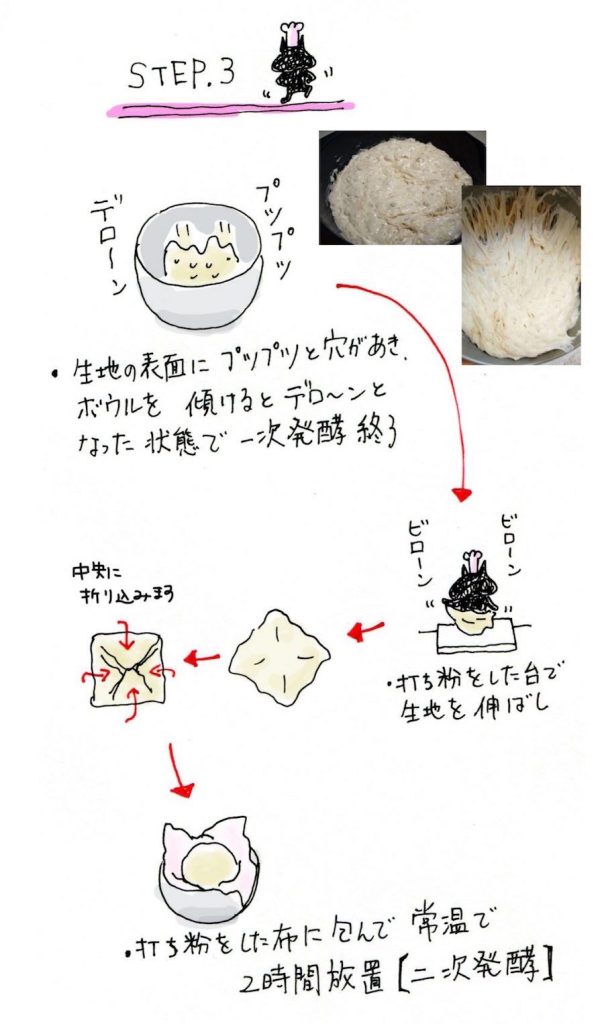 STEP.3
プツプツ
デローン
・生地の表面に プツプツと穴があき、
ボウルを 傾けると デロ〜ンと
なった 状態で 一次発酵 終了
ビローン
ビローン
・打ち粉をした台で
生地を 伸ばし
中央に
折り込みます
・打ち粉をした布に包んで 常温で
2時間放置[二次発酵]